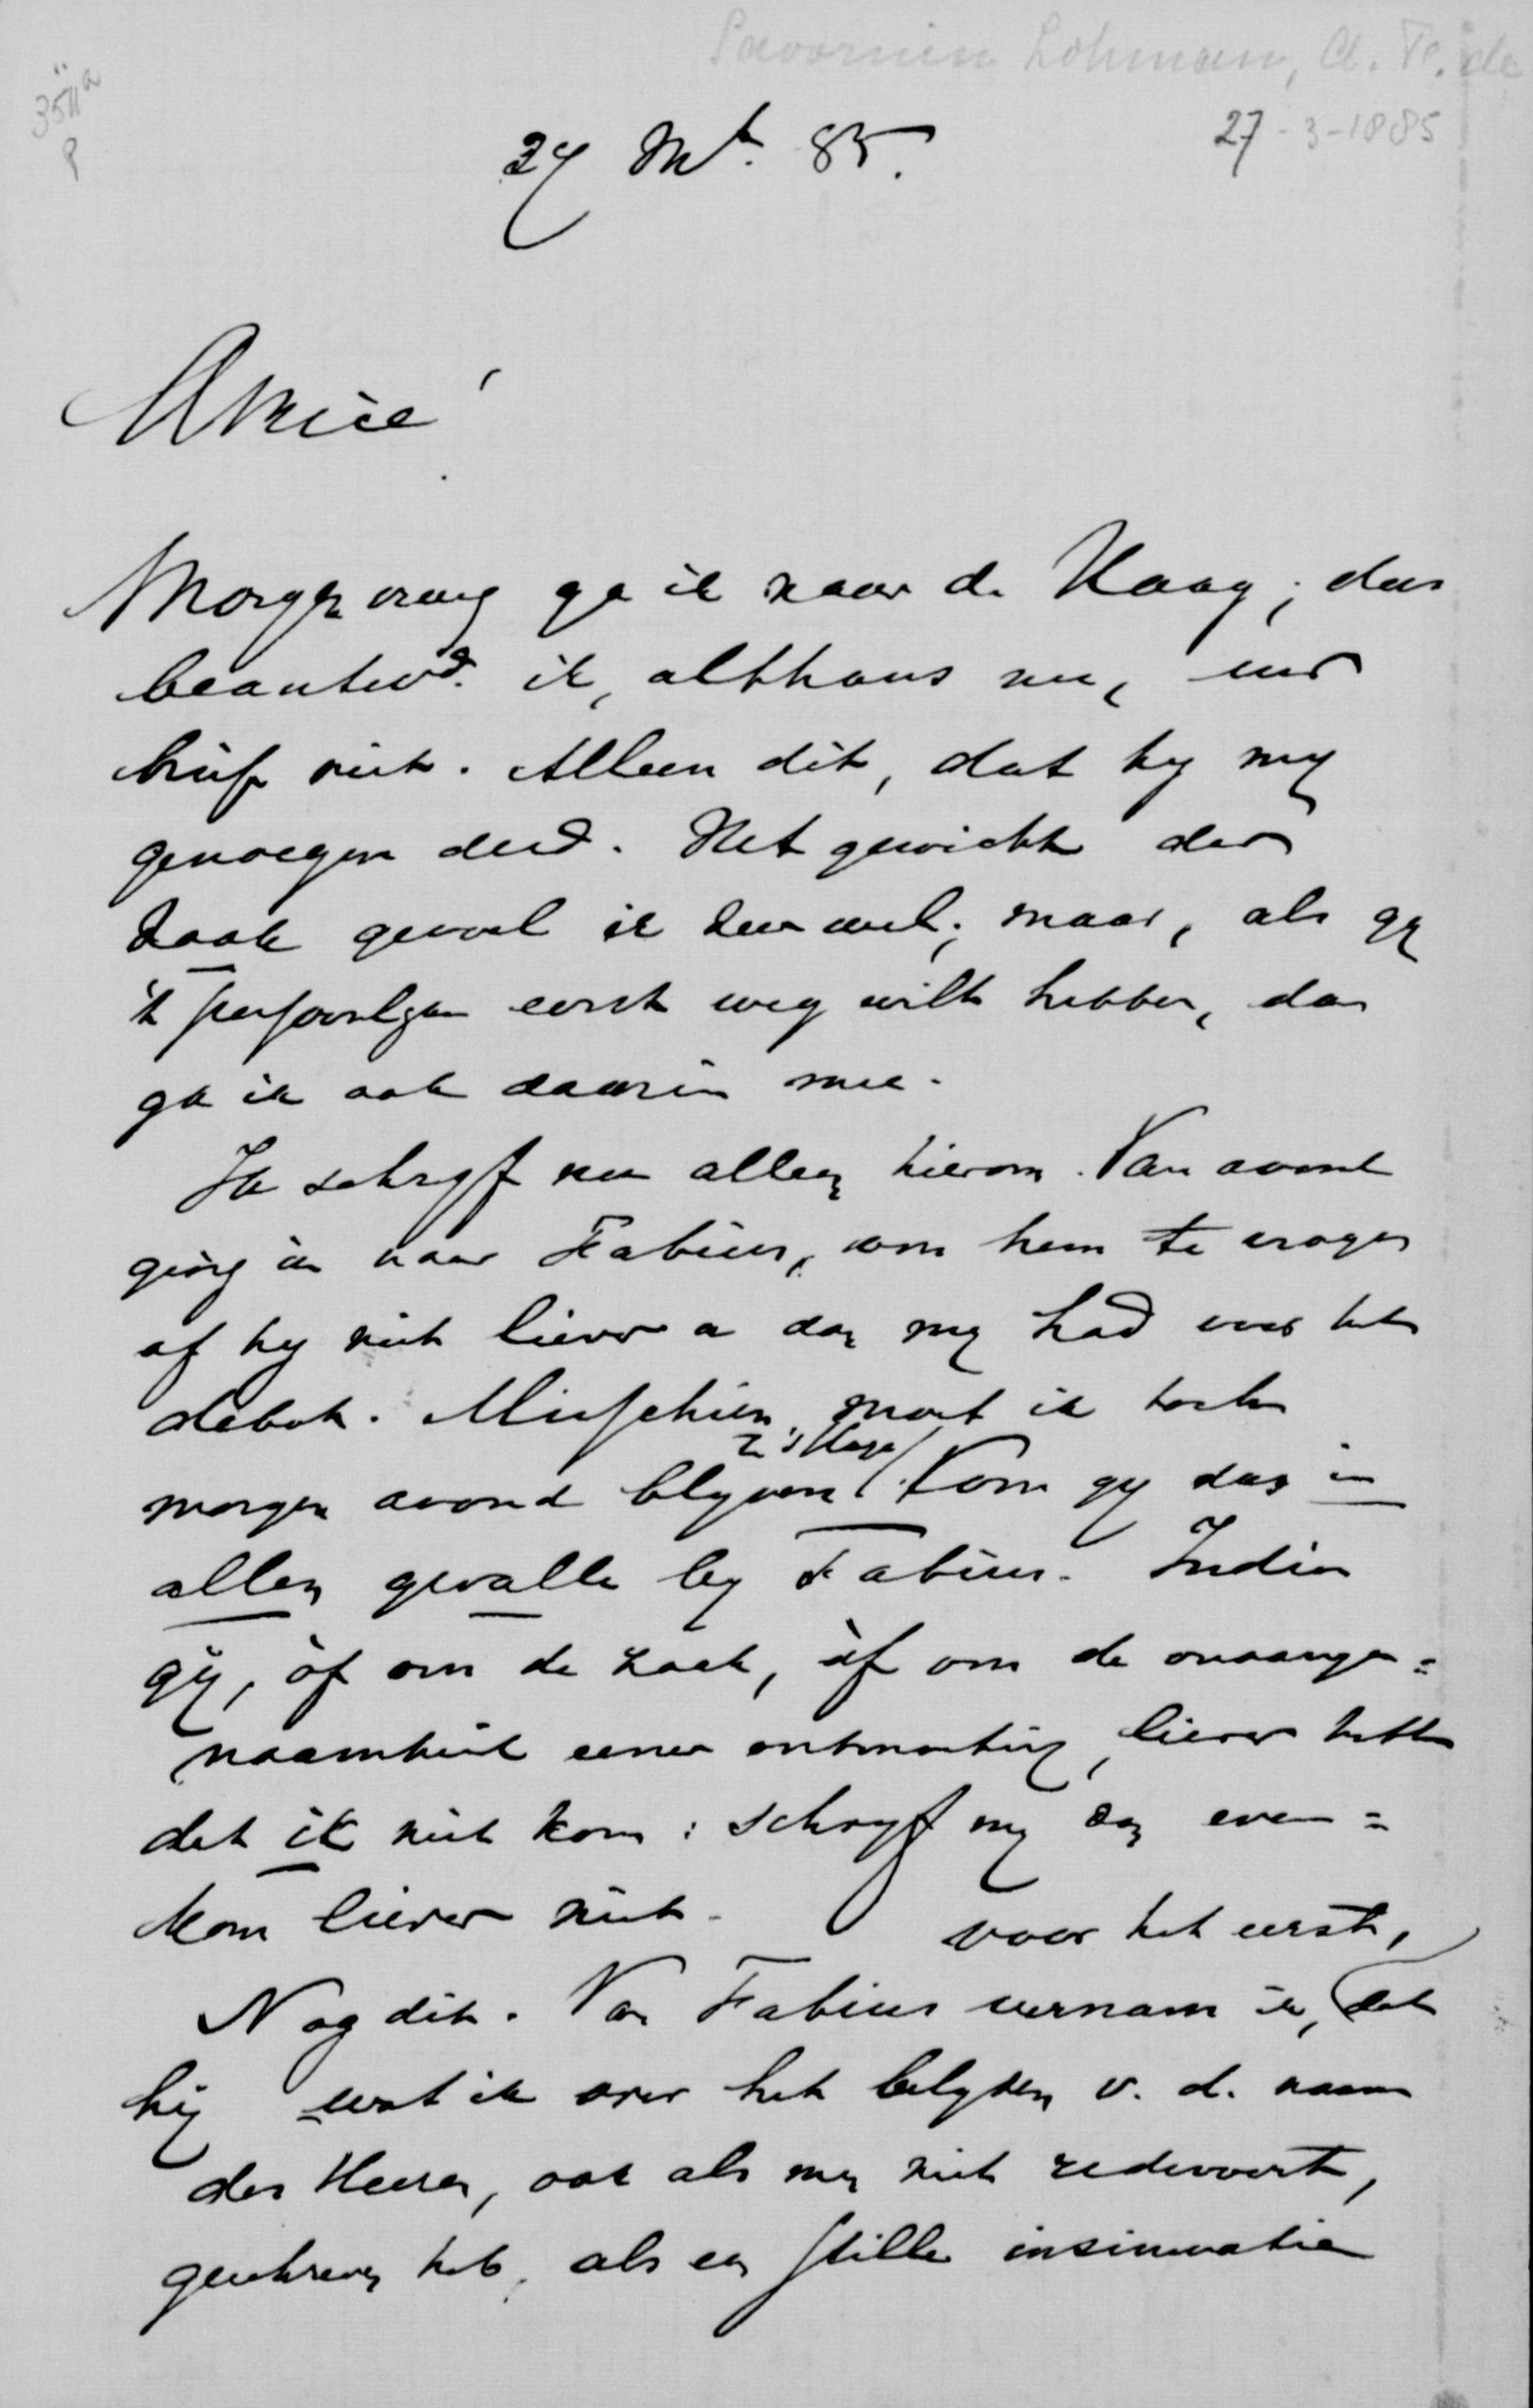 Savornin Lohman, A. F. de
3511a
27-3-1885
27 Mrt. 85.
Amice
Morgen vroeg ga ik naar de Haag; dus
beantwd. ik, althans nu, uw
brief niet. Alleen dit, dat hy my
genoegen deed. Het gewicht der
zaak gevoel ik zeer wel; maar, als gy
't persoonlyke eerst weg wilt hebben, dan
ga ik ook daarin mee.
Ik schryf nu alleen hierom. Van avond
ging ik naar Fabius, om hem te vragen
of hy niet liever a dag my had voor het
debat. Misschien moet ik toch
in 's Hage
morgen avond blyven. Kom gy dus in
allen gevalle by Fabius. Indien
gij, òf om de zaak, òf om de onaange=
naamheid eener ontmoeting, liever hebt
dat ik niet kom: schryf my dan even=
kom liever niet.
voor het eerst,
Nog dit. Van Fabius vernam ik, dat
hij wat ik over het belyden v. d. naam
des Heeren, ook als men niet redevoert,
geschreven heb, als een stille insinuatie